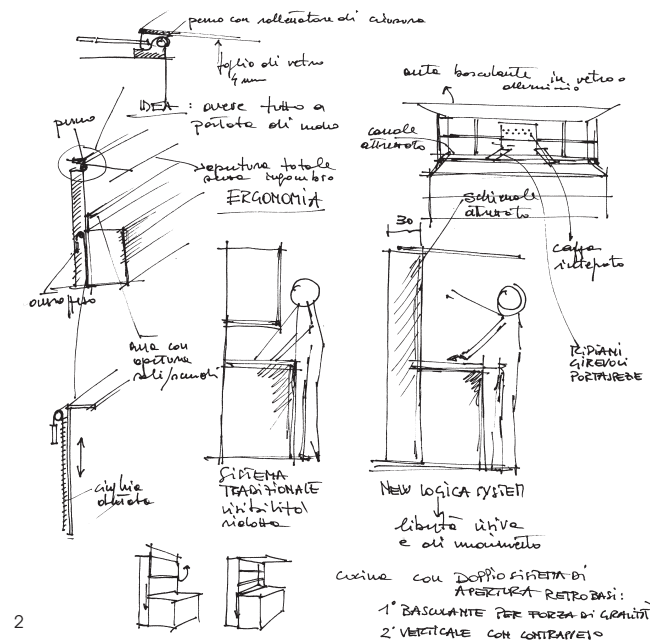 perno con rallentatore di chiusura
foglio di vetro
4 mm
IDEA : avere tutto a
portata di mano
perno
apertura totale
senza ingombro
ERGONOMIA
anta basculante in vetro e
alluminio
canale
attrezzato
schienale
attrezzato
30
cappa
integrata
RIPIANI
GIREVOLI
PORTASPEZIE
contrappeso
anta con
apertura
sali/scendi
cinghia
dentata
SISTEMA
TRADIZIONALE
visibilità
ridotta
NEW LOGICA SYSTEM
libertà visiva
e di movimento
cucina con DOPPIO SISTEMA DI
APERTURA RETROBASI:
1° BASCULANTE PER FORZA DI GRAVITÀ
2° VERTICALE CON CONTRAPPESO
2